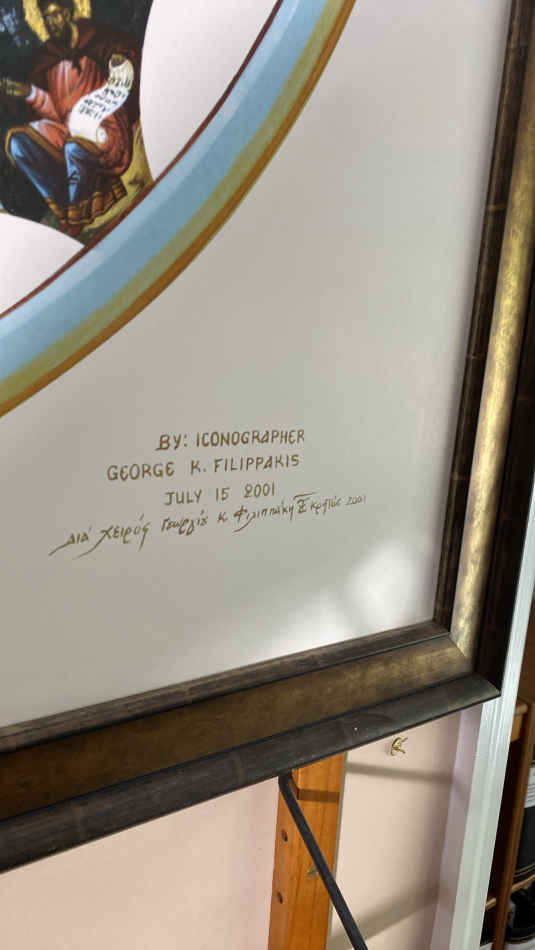 BY: ICONOGRAPHER
GEORGE K. FILIPPAKIS
JULY 15 2001
Διά χειρός Γεωργίȣ Κ Φιλιππάκη ἐκ Κρήτης 2001